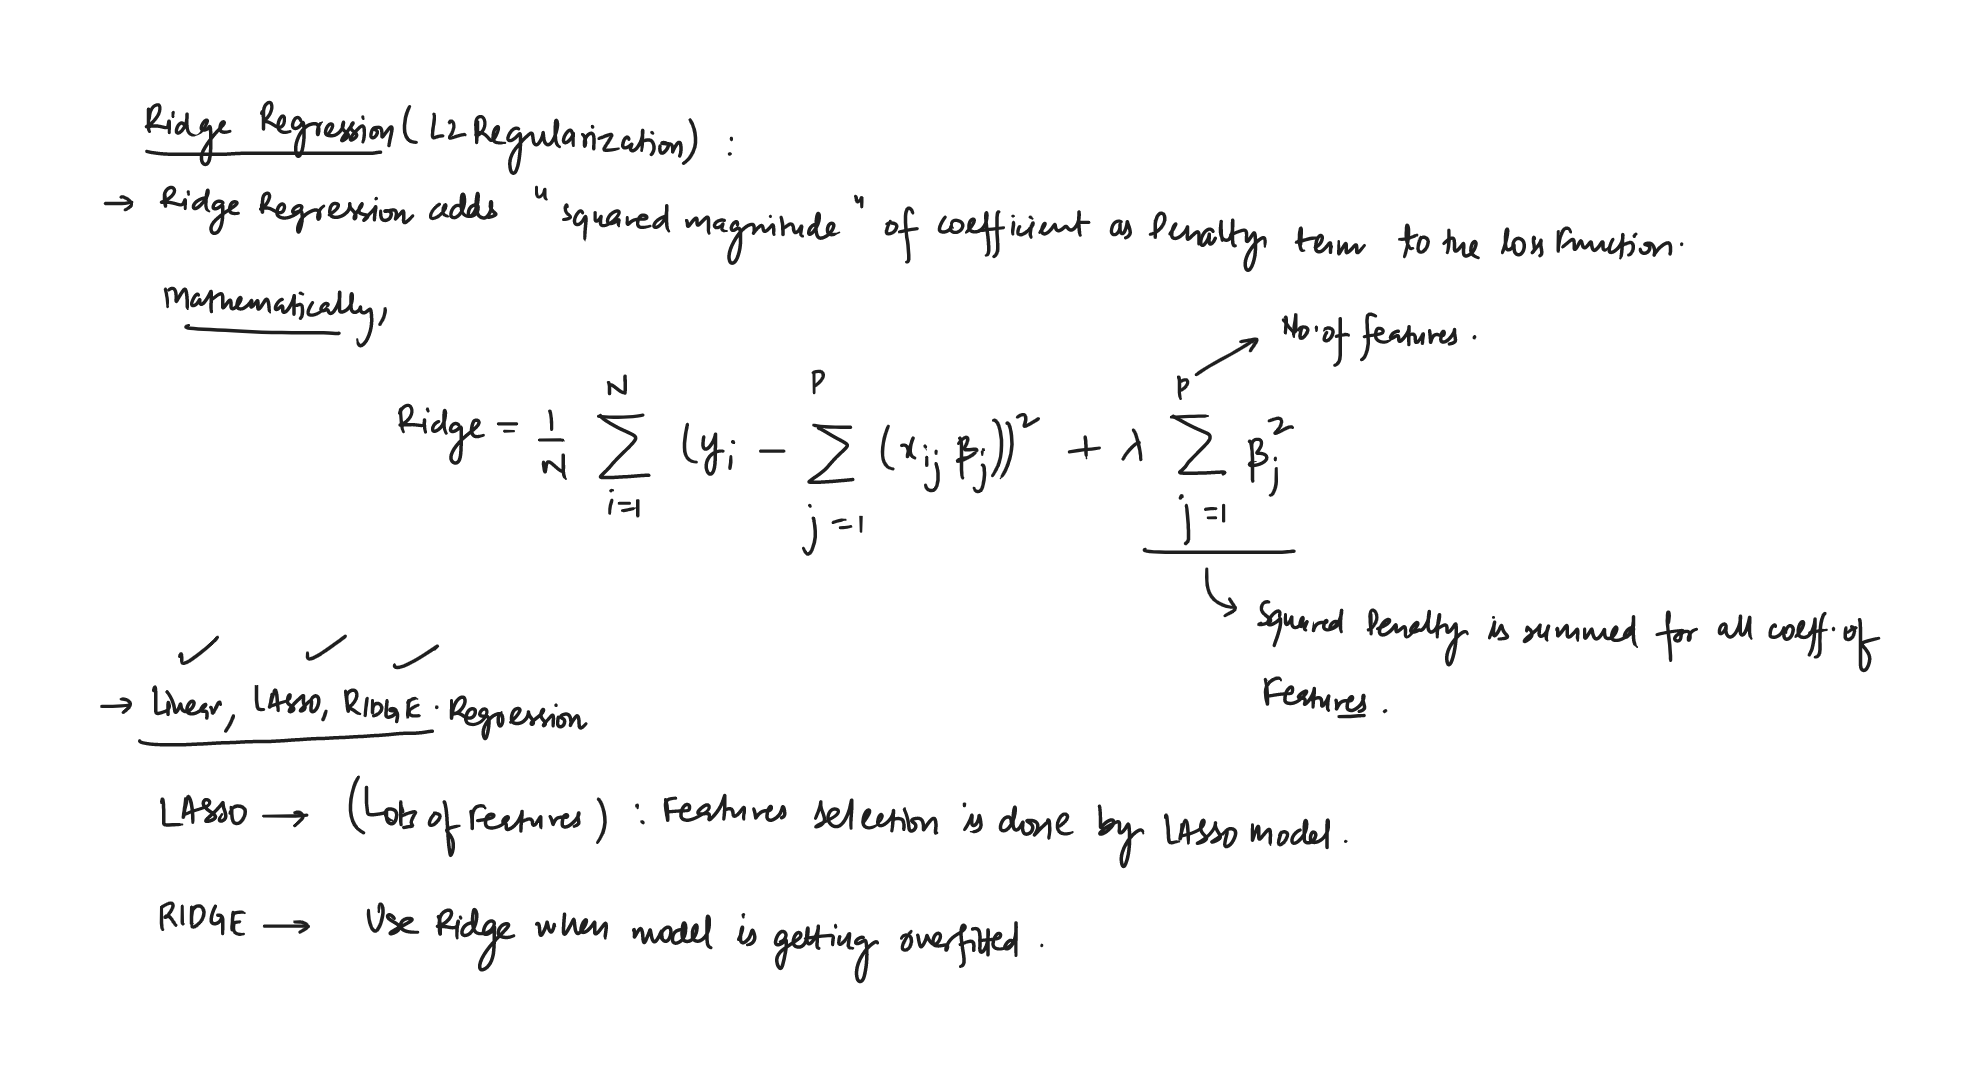 Ridge Regression (L2 Regularization) :
→ Ridge Regression adds "squared magnitude" of coefficient as Penalty term to the loss function.
Mathematically,
No. of features.
Ridge = 1/N ∑_{i=1}^{N} (y_i − ∑_{j=1}^{P} (x_{ij} β_j))^2 + λ ∑_{j=1}^{P} β_j^2
Squared Penalty is summed for all coeff. of
Features.
→ Linear, LASSO, RIDGE. Regression
LASSO → (Lots of Features) : Features selection is done by LASSO model.
RIDGE → Use Ridge when model is getting overfitted.